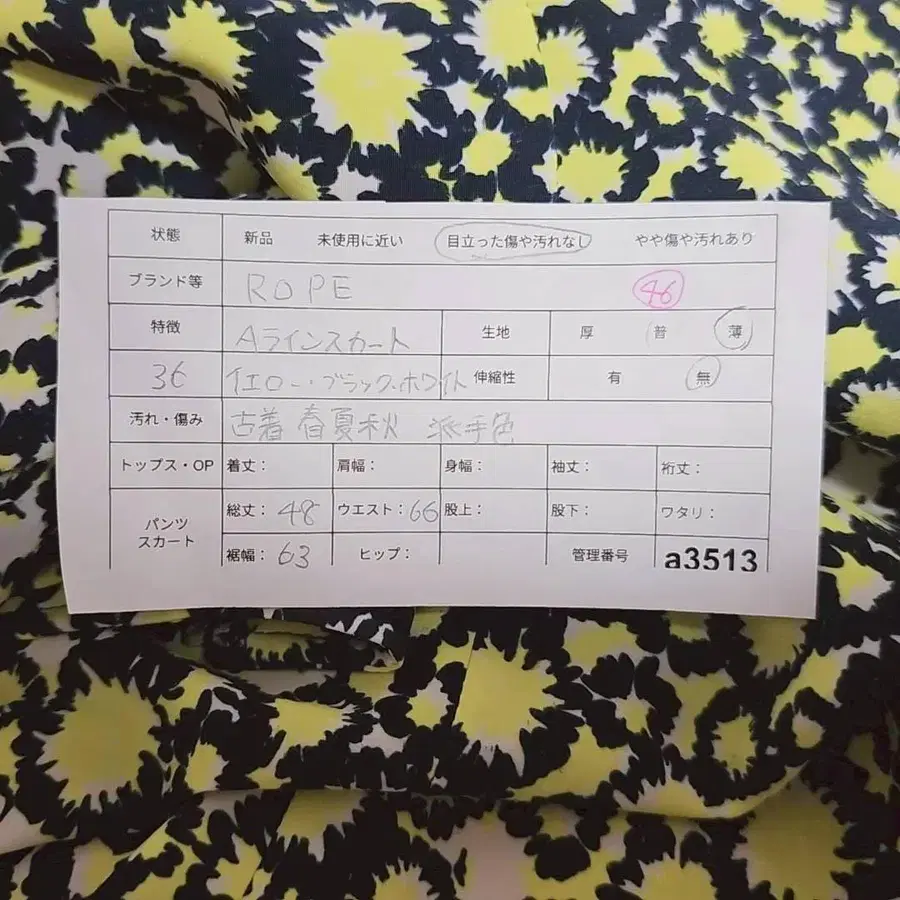 状態 新品 未使用に近い 目立った傷や汚れなし やや傷や汚れあり
ブランド等 ROPE 46
特徴 Aラインスカート 生地 厚 普 薄
36 イエロー・ブラック・ホワイト 伸縮性 有 無
汚れ・傷み 古着 春夏秋 派手色
トップス・OP 着丈： 肩幅： 身幅： 袖丈： 裄丈：
パンツ スカート 総丈：48 ウエスト：66 股上： 股下： ワタリ：
裾幅：63 ヒップ： 管理番号 a3513